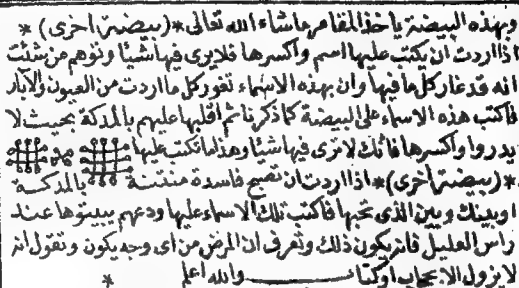 وبهذه البيضة ياخذ المقامر ما شاء الله تعالى * (بيضة اخرى) *
اذا اردت ان يكتب عليها اسم واكسرها فلا يرى فيها شيئا وتوهم من شئت
انه قد غار كل ما فيها وان بهذه الاسماء تغور كل ما اردت من العيون والآبار
فاكتب هذه الاسماء على البيضة كما ذكرنا ثم اقلبها عليهم بالدكة بحيث لا
يدروا واكسرها فانك لا ترى فيها شيئا وهذا ما تكتب عليها
* (بيضة اخرى) * اذا اردت ان تصبح فاسدة منتنة بالدكة
او بينك وبين الذى تحبها فاكتب تلك الاسماء عليها ودعهم يبيتوها عند
راس العليل فانه يكون ذلك وتعرف ان المرض من اى وجه يكون وتقول انه
لا يزول الا بحجاب او كتاب والله اعلم *